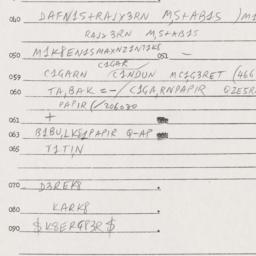 040 DAFN15+RAJX3RN M,S+AB1S
RAJX3RN M,S+AB1S
050 M1K8EN15MAXN21N71K8 051 —
C1GAR
059 C1GARN C1NDUN MC1G3RET (466
060 TA,BAK =-/ C1GA,RNPAPIR
PAPIR (/206080
061 +
063 B1BU,LK81PAPIR Q-AP
065 T1T,N
070 D3REK8
080 KARK8
090 $K8ERG83R$